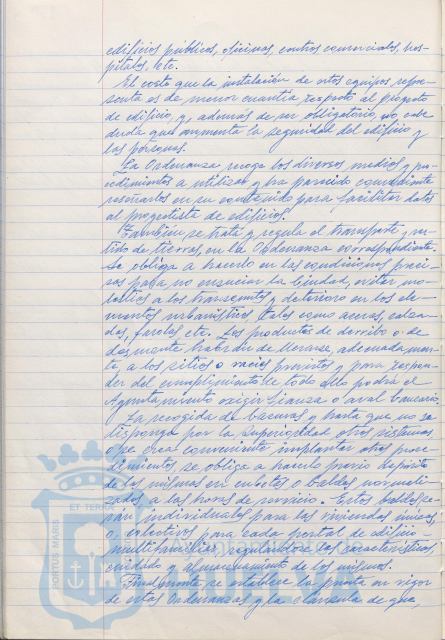 edificios públicos, oficinas, centros comerciales, hos-
pitales, etc.
El costo que la instalación de estos equipos repre-
senta es de menor cuantía respecto al proyecto
de edificio, y, además de ser obligatorio, no cabe
duda que aumenta la seguridad del edificio y
las personas.
La Ordenanza recoge los diversos medios y pro-
cedimientos a utilizar y ha parecido conveniente
reseñarlos en su contenido para facilitar datos
al proyectista de edificios.
También se trata y regula el transporte y ver-
tido de tierras, en la Ordenanza correspondiente.
Se obliga a hacerlo en las condiciones preci-
sas para no ensuciar la Ciudad, evitar mo-
lestias a los transeuntes y deterioro en los ele-
mentos urbanísticos tales como aceras, calza-
das, farolas etc. Los productos de derribo o de
desmonte habrán de llevarse, adecuadamen-
te, a los sitios o vacios previstos y para respon-
der del cumplimiento de todo ello podrá el
Ayuntamiento exigir fianza o aval bancario.
La recogida de basuras y hasta que no se
disponga por la Superioridad otros sistemas
o se crea conveniente implantar otros proce-
dimientos, se obliga a hacerlo previo depósito
de las mismas en cubetos o baldes normali-
zados, a las horas de servicio. Estos baldes se-
rán individuales para las viviendas únicas
o colectivos para cada portal de edificio
multifamiliar regulandose las características
cuidado y almacenamiento de los mismos.
Finalmente se establece la puesta en vigor
de estas Ordenanzas y la cláusula de que,
ET TERRA
PORTUS MARIS